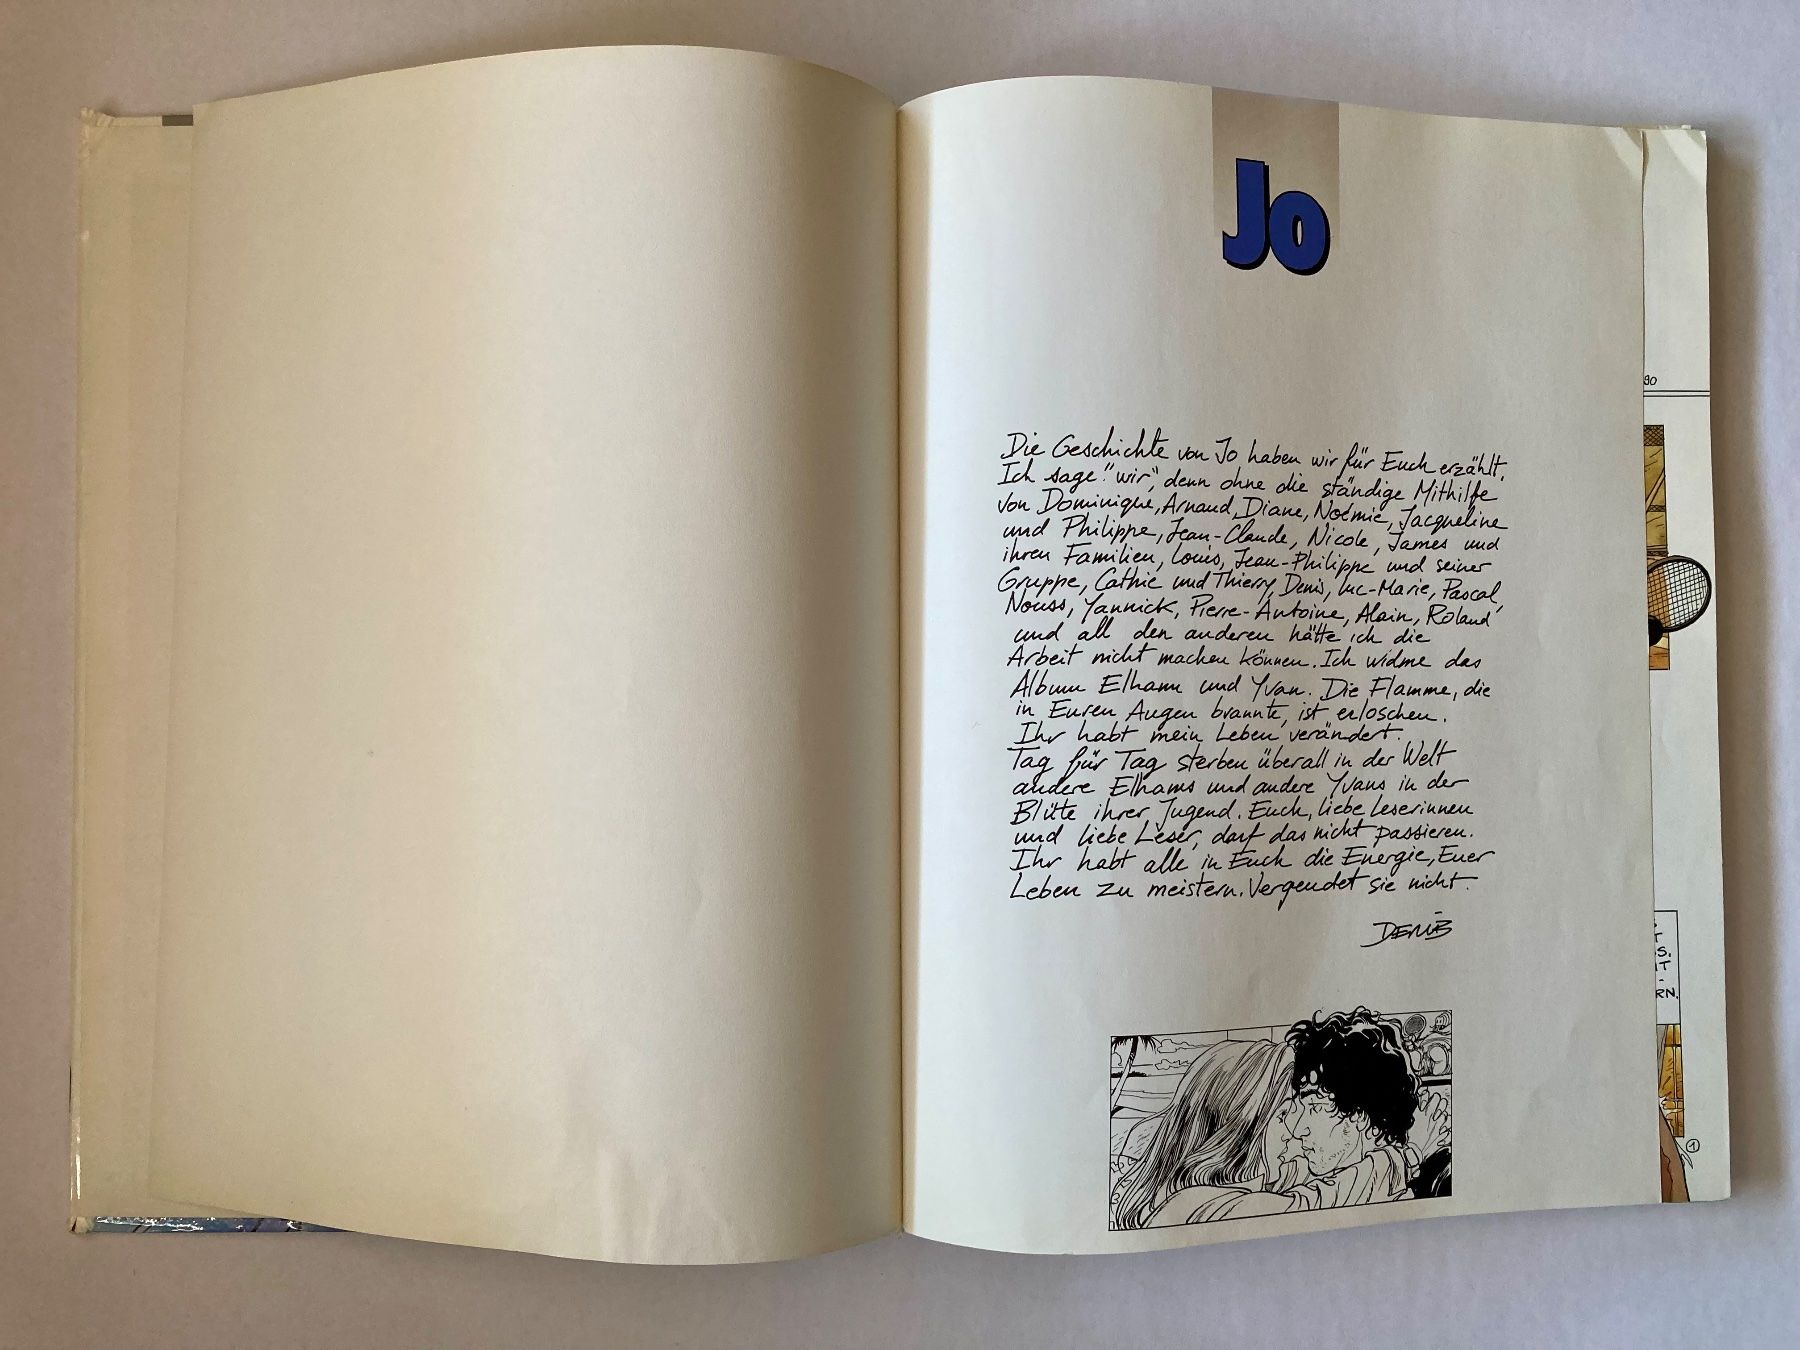 Jo
Die Geschichte von Jo haben wir für Euch erzählt.
Ich sage "wir", denn ohne die ständige Mithilfe
von Dominique, Arnaud, Diane, Noémie, Jacqueline
und Philippe, Jean-Claude, Nicole, James und
ihren Familien, Louis, Jean-Philippe und seiner
Gruppe, Cathie und Thierry, Denis, Luc-Marie, Pascal,
Nouss, Yannick, Pierre-Antoine, Alain, Roland
und all den anderen hätte ich die
Arbeit nicht machen können. Ich widme das
Album Elham und Yvan. Die Flamme, die
in Euren Augen brannte, ist erloschen.
Ihr habt mein Leben verändert.
Tag für Tag sterben überall in der Welt
andere Elhams und andere Yvans in der
Blüte ihrer Jugend. Euch, liebe Leserinnen
und liebe Leser, darf das nicht passieren.
Ihr habt alle in Euch die Energie, Euer
Leben zu meistern. Vergeudet sie nicht.
DERIB
90
T
S.
T
-
RN.
1